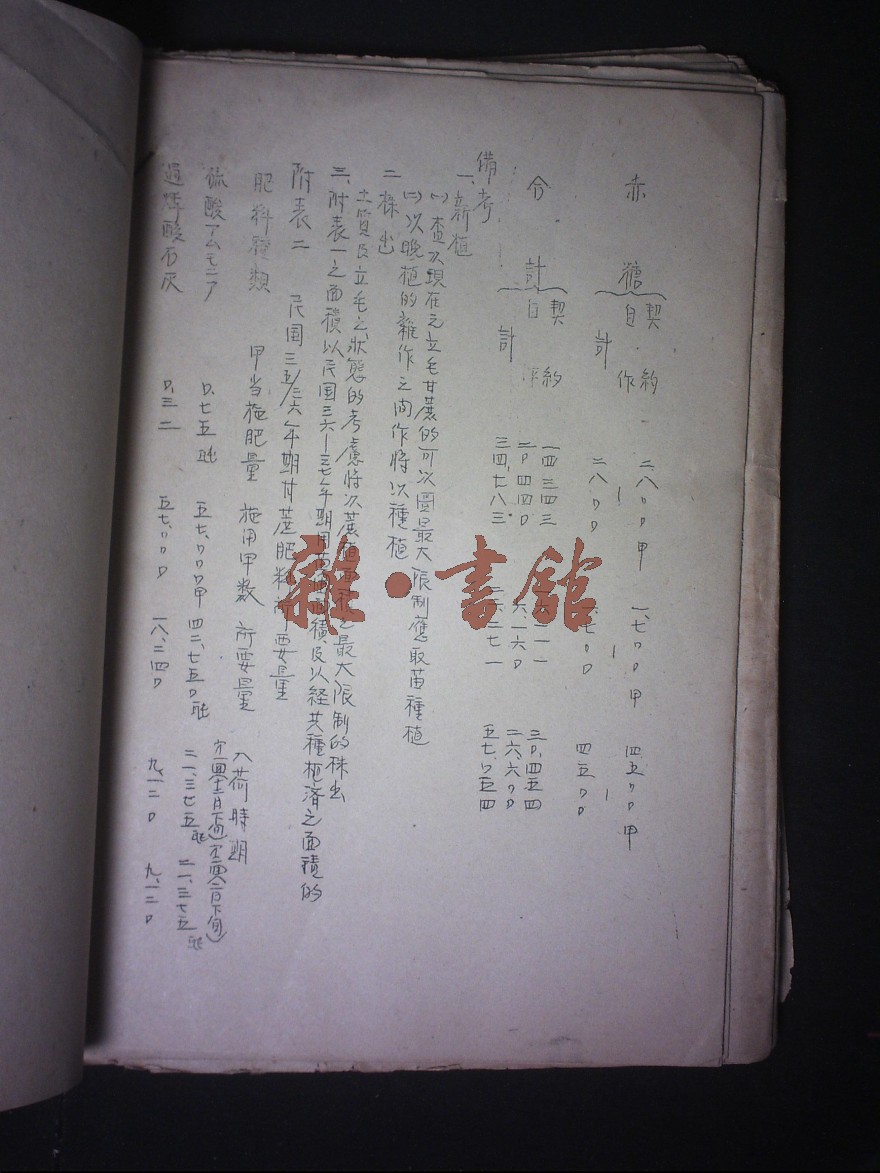 赤糖 契約 二、八〇〇甲 一、七〇〇甲 四五〇〇甲
自作 | | |
計 二八〇〇 四五〇〇
合計 契約 一四三四三 三〇、四五四
自 二〇、四四〇 六、一六〇 二六、六〇〇
計 三四、七八三 二二二七一 五七、〇五四
備考
一、新植
(一) 查以現在之立毛甘蔗的可以圖最大限制應取苗種植
(二) 以晚植的雜作之間作將以種植
二、株出
土質及立毛之狀態的考慮將以蔗植 最大限制的株出
三、附表一之面積以民国三六—三七年期 積及以経其種植済之面積的
附表二 民国三五/三六年期甘蔗肥料所要量
肥料種類 甲当施肥量 施用甲数 所要量 入荷時期
硫酸アムモニア 〇、七五瓲 五七、〇〇〇甲 四二、七五〇瓲 二一、三七五瓲 二一、三七五瓲
過燐酸石灰 〇、三二 五七、〇〇〇 一八、二四〇 九、一二〇 九、一二〇
雜·書館